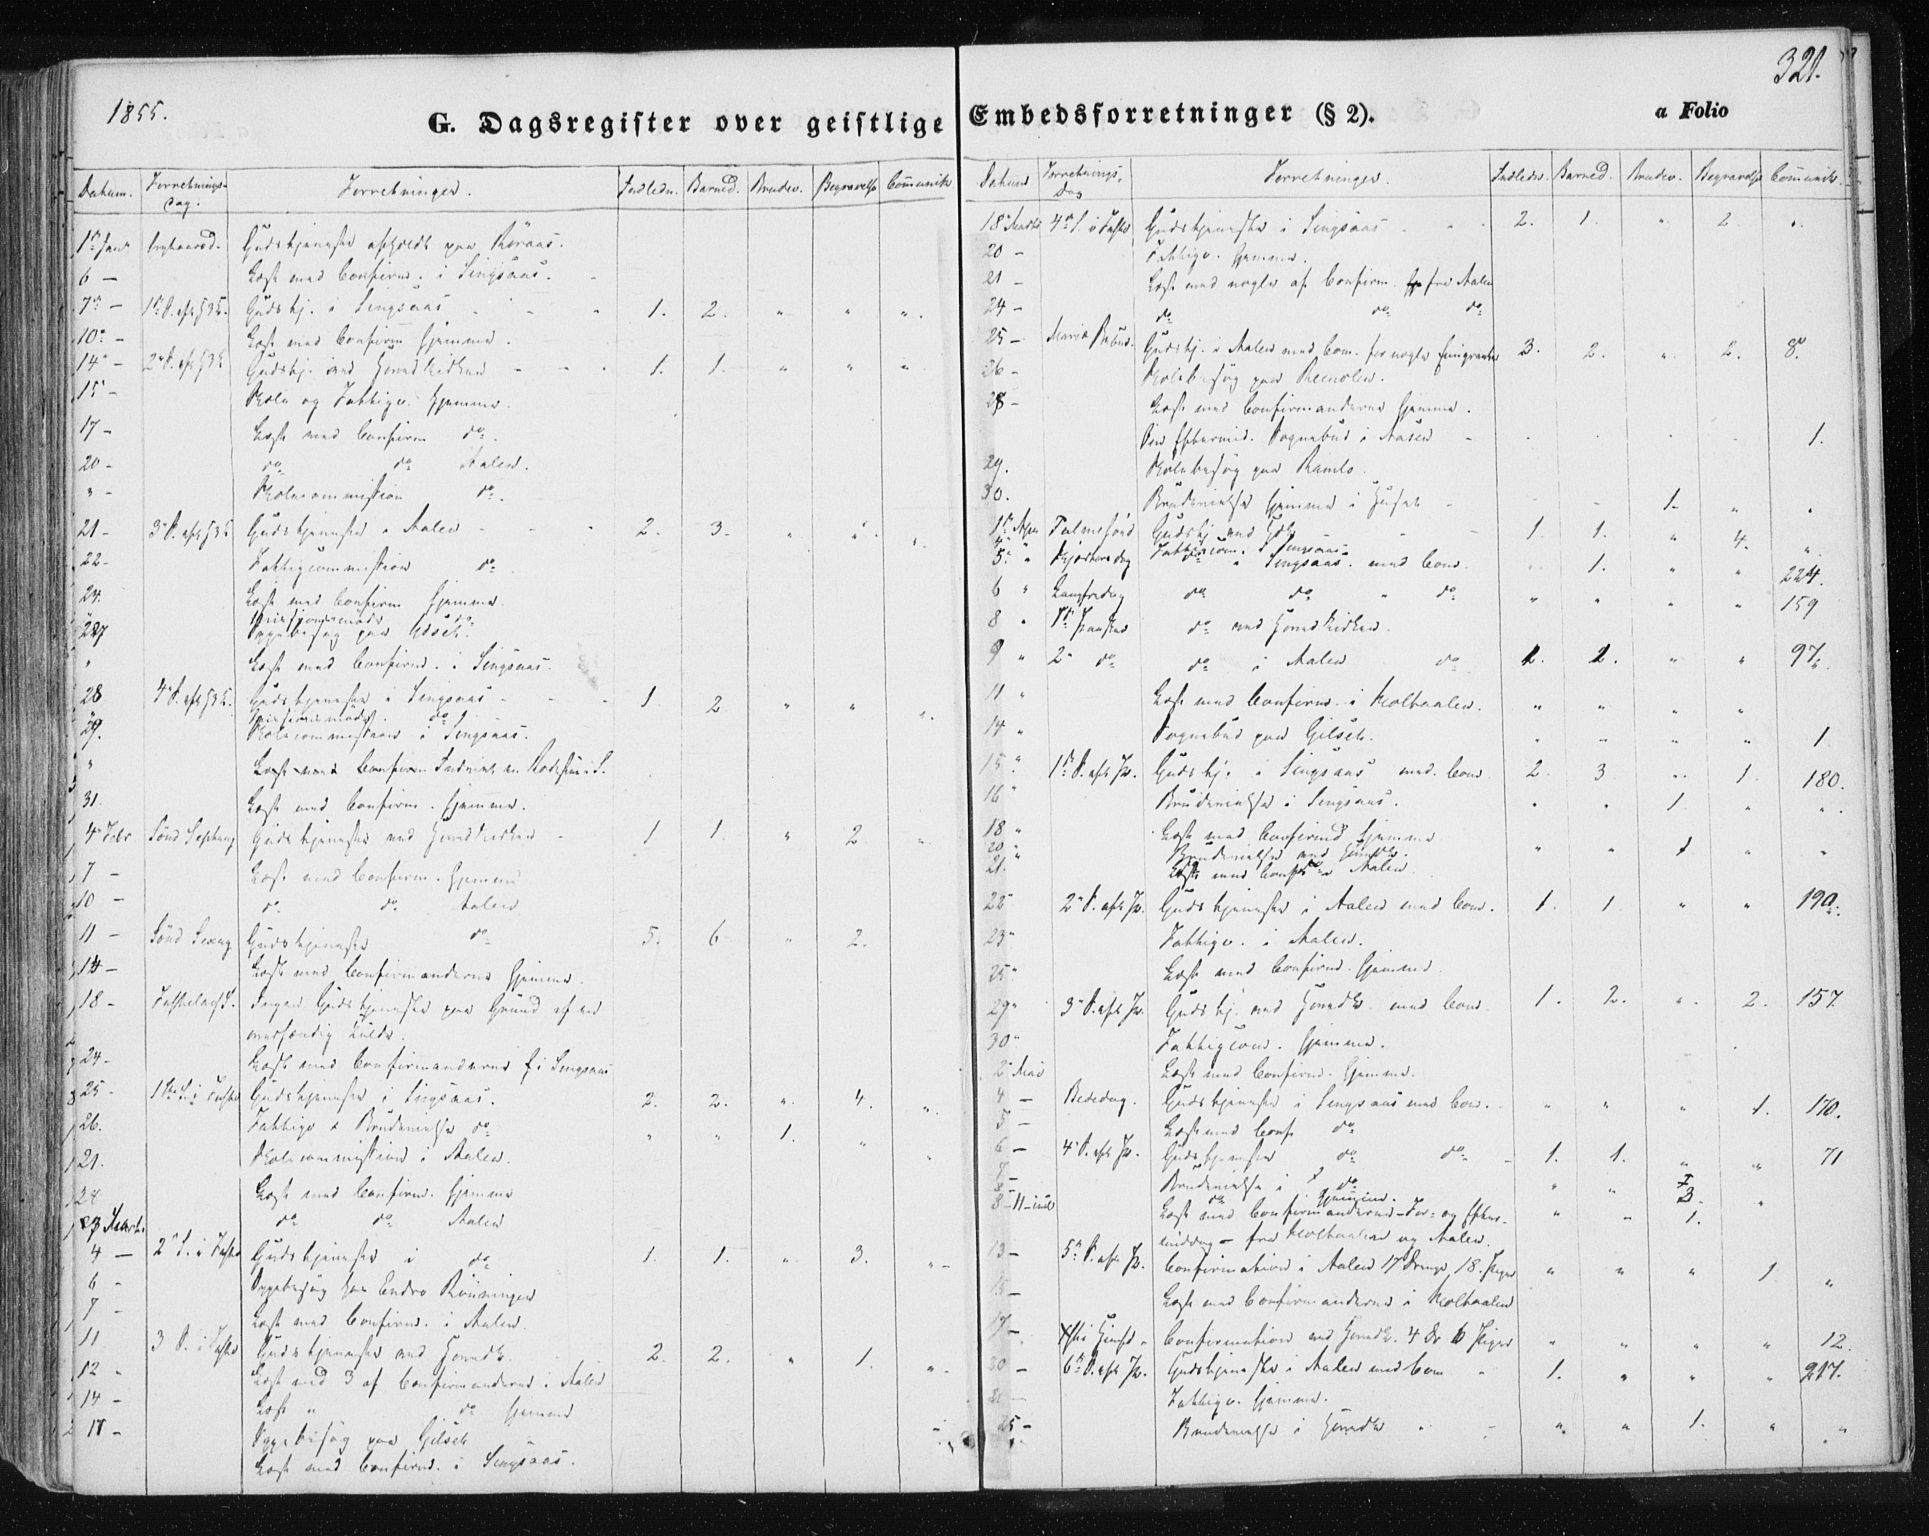 321.
1855.
G. Dagsregister over geistlige Embedsforretninger (§ 2).
a Folio
Datum. Forretningsdag. Forretninger. Indledn. Barned. Brudev. Begravelse Communik.
1ste Janr Nytaarsd. Gudstjeneste afholdt paa Röraas.
6 — Læst med Confirm. i Singsaas.
7de — 1ste S. eft. H3K. Gudstj. i Singsaas 1. 2. " " "
10de — Læst med Confirm hjemme.
14de — 2den S. eft. H3K Gudstj. ved Hovedkirken 1. 1. " " "
15 — Skole og Fattigc. hjemme.
17 — Læst med Confirm do.
20 — do do Aalen.
" — Skolecommission do.
21 — 3die S. eft. H3K Gudstjeneste i Aalen 2. 3. " " "
22 — Fattigcommission do
24. Læst med Confirm hjemme
27 Sygebesøg paa
" Læst med Confirm. i Singsaas.
28 4de S. eft. H3K. Gudstjeneste i Singsaas 1 2 " " "
29. Skolecommission i Singsaas.
31. Læst med Confirm. hjemme.
4de Febr Sönd Septuag Gudstjeneste ved Hovedkirken 1 1. " 2 "
7 — Læst med Confirm. hjemme
10 — do do Aalen
11 — Sönd Sexag Gudstjeneste do 5. 6 " 2.
14 — Læst med Confirmanderne hjemme.
18 — Fastelavns S. Ingen Gudstjeneste paa Grund af en
Kulde.
24 — Læst med Confirmanderne i Singsaas
25 — 1ste S. i Faste Gudstjeneste i Singsaas. 2. 2. " 4. "
26. Fattigc & Brudevielse do " " 1. " "
21. Skolecommission i Aalen.
28 Læst med Confirm. hjemme
3 Marts do do Aalen
4 — 2den S. i Faste Gudstjeneste i do 1. 1. " 3. "
6 — Sygebesøg hos Endre Rönningen
7 — Læst med Confirm. i Aalen.
11 3 S. i Faste Gudstjeneste ved Hovedk. 2. 2. " 1. "
12 — Læst med 3 af Confirmanderne i Aalen
14 — Læst " do hjemme
17 — Sygebesøg paa Gilset
Læst med Confirm. i Singsaas.
Datum Forretningsdag Forretninger. Indledn. Barned. Brudev. Begravelse Communik.
18 Marts 4de S. i Faste Gudstjeneste i Singsaas 2. 1. " 2. "
20 — Fattigc. hjemme.
21 — Læst med nogle af Confirm. fra Aalen
24 — do do do
25 — Mariæ Bebud. Gudstj. i Aalen med Com. for nogle Emigranter 3. 2. " 2. 8.
26 — Skolebesøg paa Reenolen.
28 — Læst med Confirmanderne hjemme.
Den Eftermid. Sognebud i Aasen 1.
29. Skolebesøg paa Ramlo.
30. Brudevielse hjemme i Huset 1. " "
1ste Apr Palmesönd Gudstj. ved Hdk. 1. 1. " 4. "
4 " Fattigcom. i Singsaas
5 " Skjærtorsdag do i Singsaas. med Com. " 1. " " 224.
6 " Langfredag do do " do " " " " 159
8 " 1ste Paaskedag do ved Hovedkirken.
9 " 2den do do i Aalen do 1. 2. " " 97.
11 " Læst med Confirm. i Holtaalen. " " " "
14 " Sognebud paa Gilset. " " " " 1
15 " 1ste S. eft. P. Gudstj. i Singsaas med. Com. 2. 3 " 1. 180.
16 " Brudevielse i Singsaas. " " 1. " "
18 " Læst med Confirmd hjemme
20 " Brudevielse ved Hovedk. " " 1 " "
21. " Læst med Conf. i Aalen
22 2den S. eft. P. Gudstjeneste i Aalen med Com. 1. 1. " " 190.
23 " Fattigc. i Aalen.
25 " Læst med Confirm. hjemme
29 " 3die S. eft. P. Gudstj. ved Hovedk. med Com 1. 2. " 2. 157.
30 " Fattigcom. hjemme.
2 Mai Læst med Confirm. hjemme.
4 — Bededag. Gudstjeneste i Singsaas med Com. " " " 1. 170.
5 — Læst med Conf. do
6 — 4de S. eft. P. Gudstjeneste do do 1. 1. " " 71
7 — Brudevielse i do
8 – 11 incl. Læst med Confirmanderne – For= og Efter=
middag – fra Holtaalen og Aalen.
13 — 5te S. eft. P. Confirmation i Aalen 17 Drenge, 18. Piger " " " 1 "
15 — Læst med Confirmanderne i Holtaalen
17 — Chri Himf. Confirmation ved Hovedk. 4 Dr 6 Piger " " " " 12.
20 — 6te S. eft. P. Gudstjeneste i Aalen med Com 1. " " " 217.
21 — Fattigc. hjemme.
25 — Brudevielse i Hovedk " " 1. " "